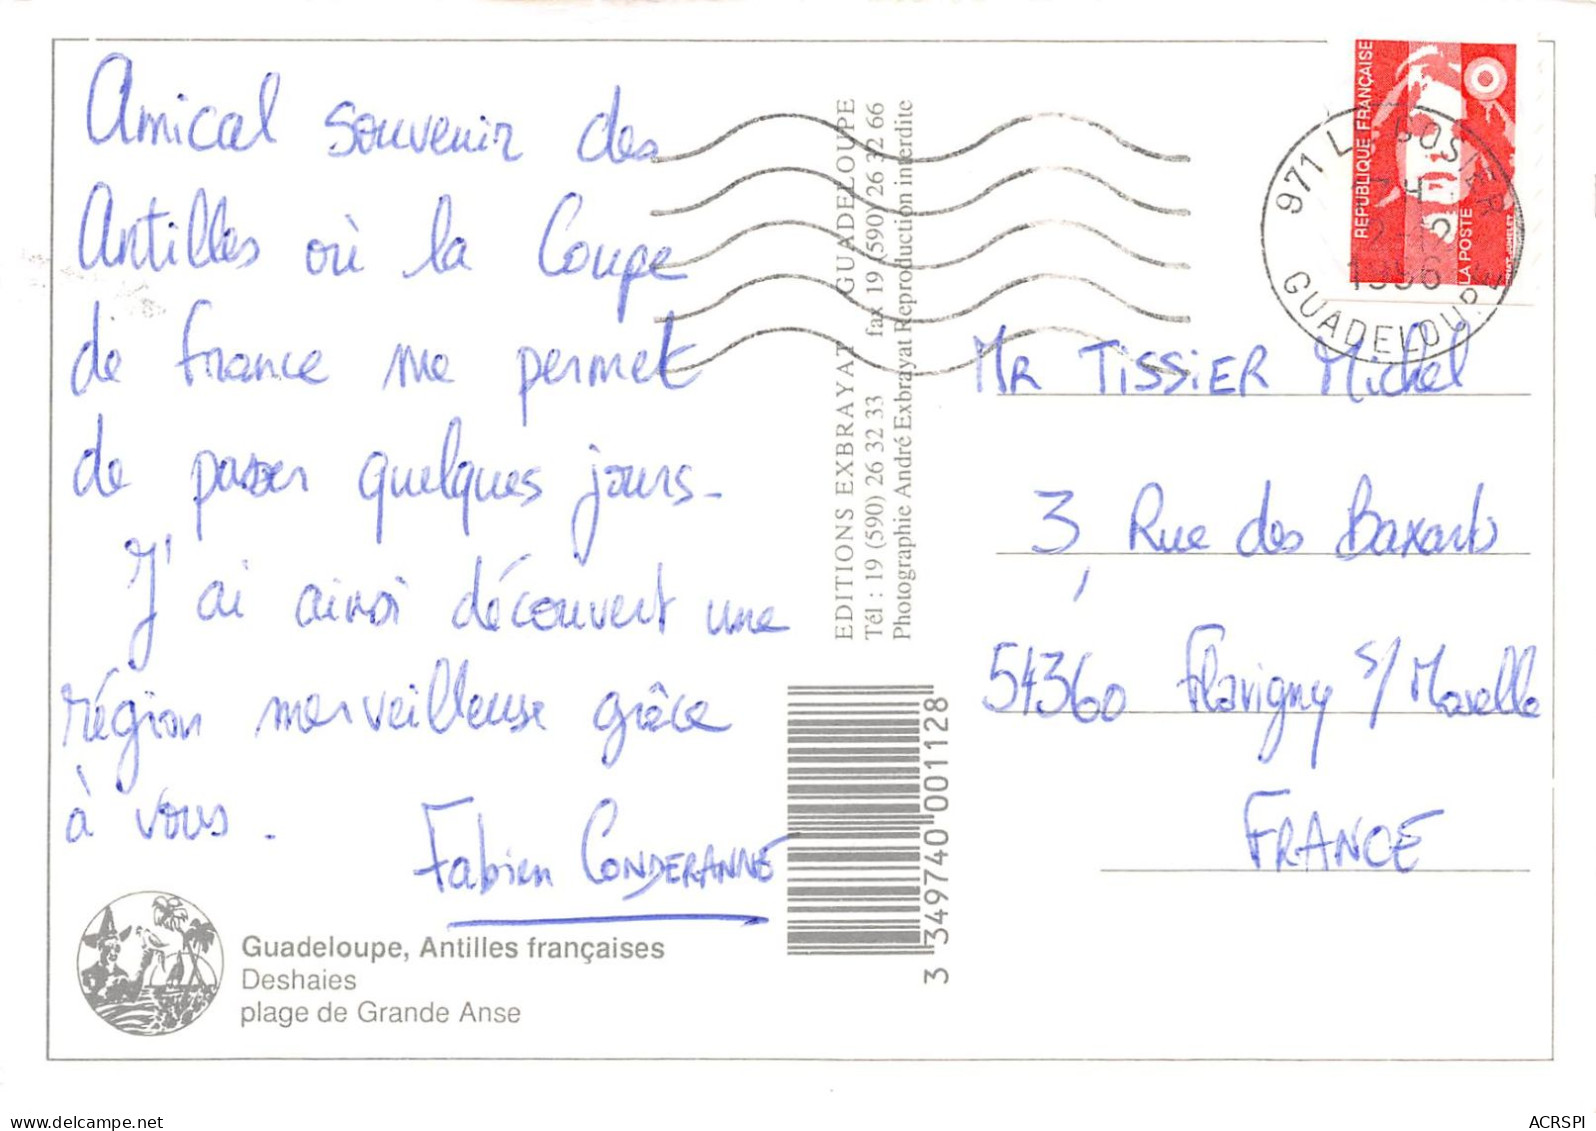 Amical souvenir des
Antilles où la Coupe
de France me permet
de passer quelques jours.
J'ai ainsi découvert une
région merveilleuse grâce
à vous.
Fabien CONDERANNE
Guadeloupe, Antilles françaises
Deshaies
plage de Grande Anse
EDITIONS EXBRAYAT GUADELOUPE
Tél : 19 (590) 26 32 33 fax 19 (590) 26 32 66
Photographie André Exbrayat Reproduction interdite
3 349740 001128
RÉPUBLIQUE FRANÇAISE
LA POSTE
971 LE GOSIER
1996
GUADELOUPE
MR TISSIER Michel
3, Rue des
54360 Flavigny s/ Moselle
FRANCE
www.delcampe.net
ACRSPI